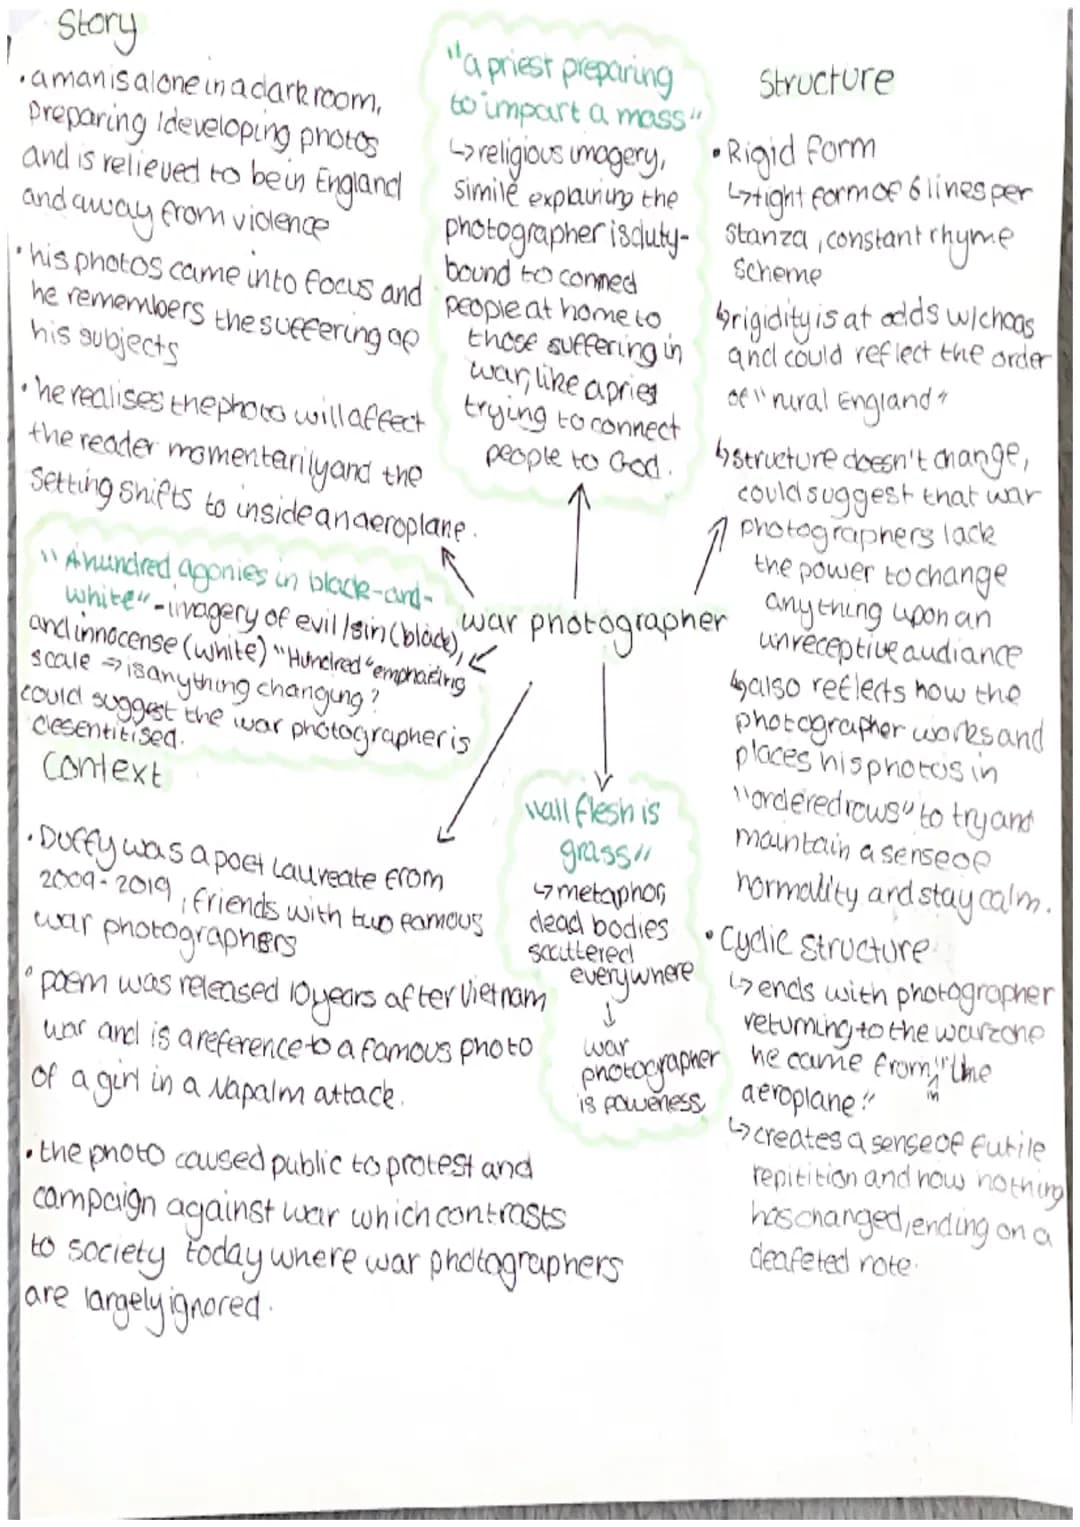 Story
• a man is alone in a dark room,
preparing / developing photos
and is relieved to be in England
and away from violence
• his photos came into focus and
he remembers the suffering of
his subjects
• he realises the photo will affect
the reader momenterily and the
setting shifts to inside an aeroplane.
"A hundred agonies in black-and-
white" - imagery of evil / sin (black),
and innocense (white) "Hundred" emphaising
scale → is anything changing?
could suggest the war photographer is
desentitised.
Context
• Duffy was a poet Laureate from
2009-2019, friends with two famous
war photographers
• poem was released 10 years after Vietnam
war and is a reference to a famous photo
of a girl in a Napalm attack.
• the photo caused public to protest and
campaign against war which contrasts
to society today where war photographers
are largely ignored.
"a priest preparing
to impart a mass"
↳ religious imagery,
simile explaining the
photographer is duty-
bound to connect
people at home to
those suffering in
war, like a priest
trying to connect
people to God.
war photographer
"all flesh is
grass"
↳ metaphor,
dead bodies
scattered
everywhere
↓
war
photographer
is powerless
Structure
• Rigid form
↳ tight form of 6 lines per
stanza, constant rhyme
scheme
↳ rigidity is at odds w/ chaos
and could reflect the order
of "rural England"
↳ structure doesn't change,
could suggest that war
photographers lack
the power to change
anything upon an
unreceptive audiance
↳ also reflects how the
photographer works and
places his photos in
"ordered rows" to try and
maintain a sense of
normality and stay calm.
• Cyclic structure
↳ ends with photographer
returning to the warzone
he came from, in "the
aeroplane."
↳ creates a sense of futile
repitition and how nothing
has changed, ending on a
deafeted note.